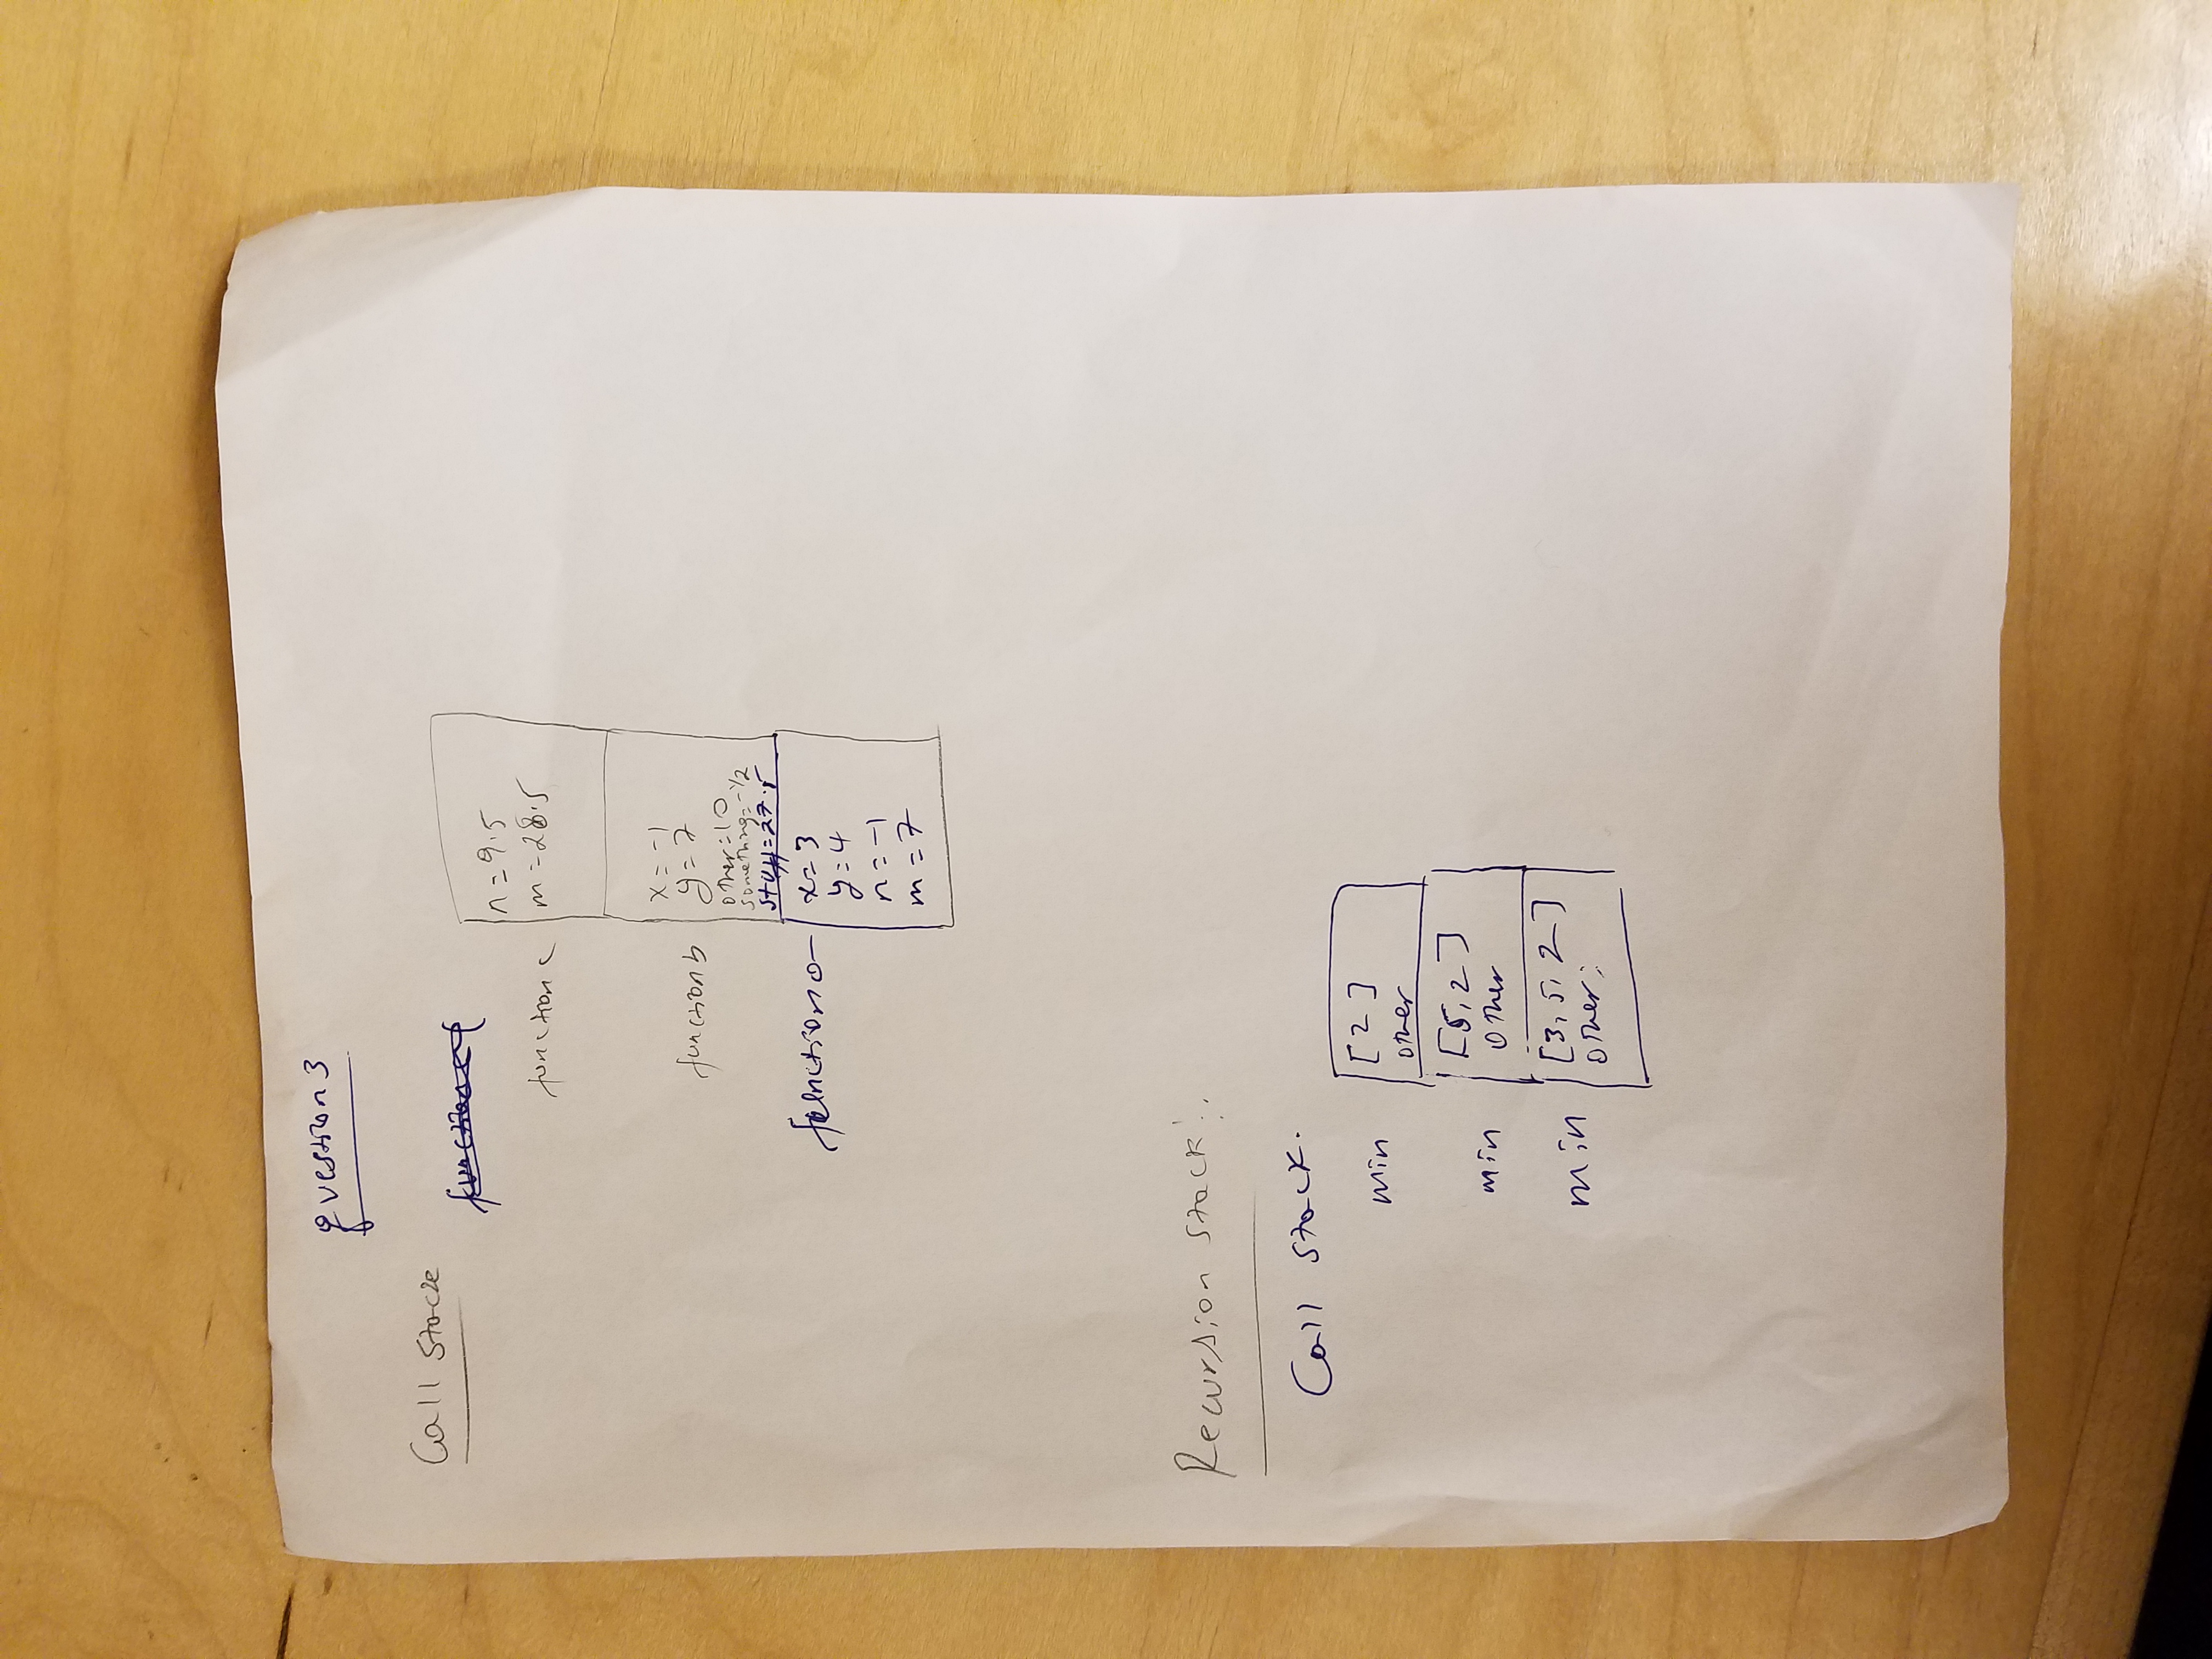 question 3
Call stack
n = 9.5
function c
m = 28.5
x = -1
function b
y = 7
other = 10
something = -1/2
stuff = 27.5
function a
x = 3
y = 4
n = -1
m = 7
Recursion stack:
Call stack.
min
[2]
other
min
[5, 2]
other
min
[3, 5, 2]
other: